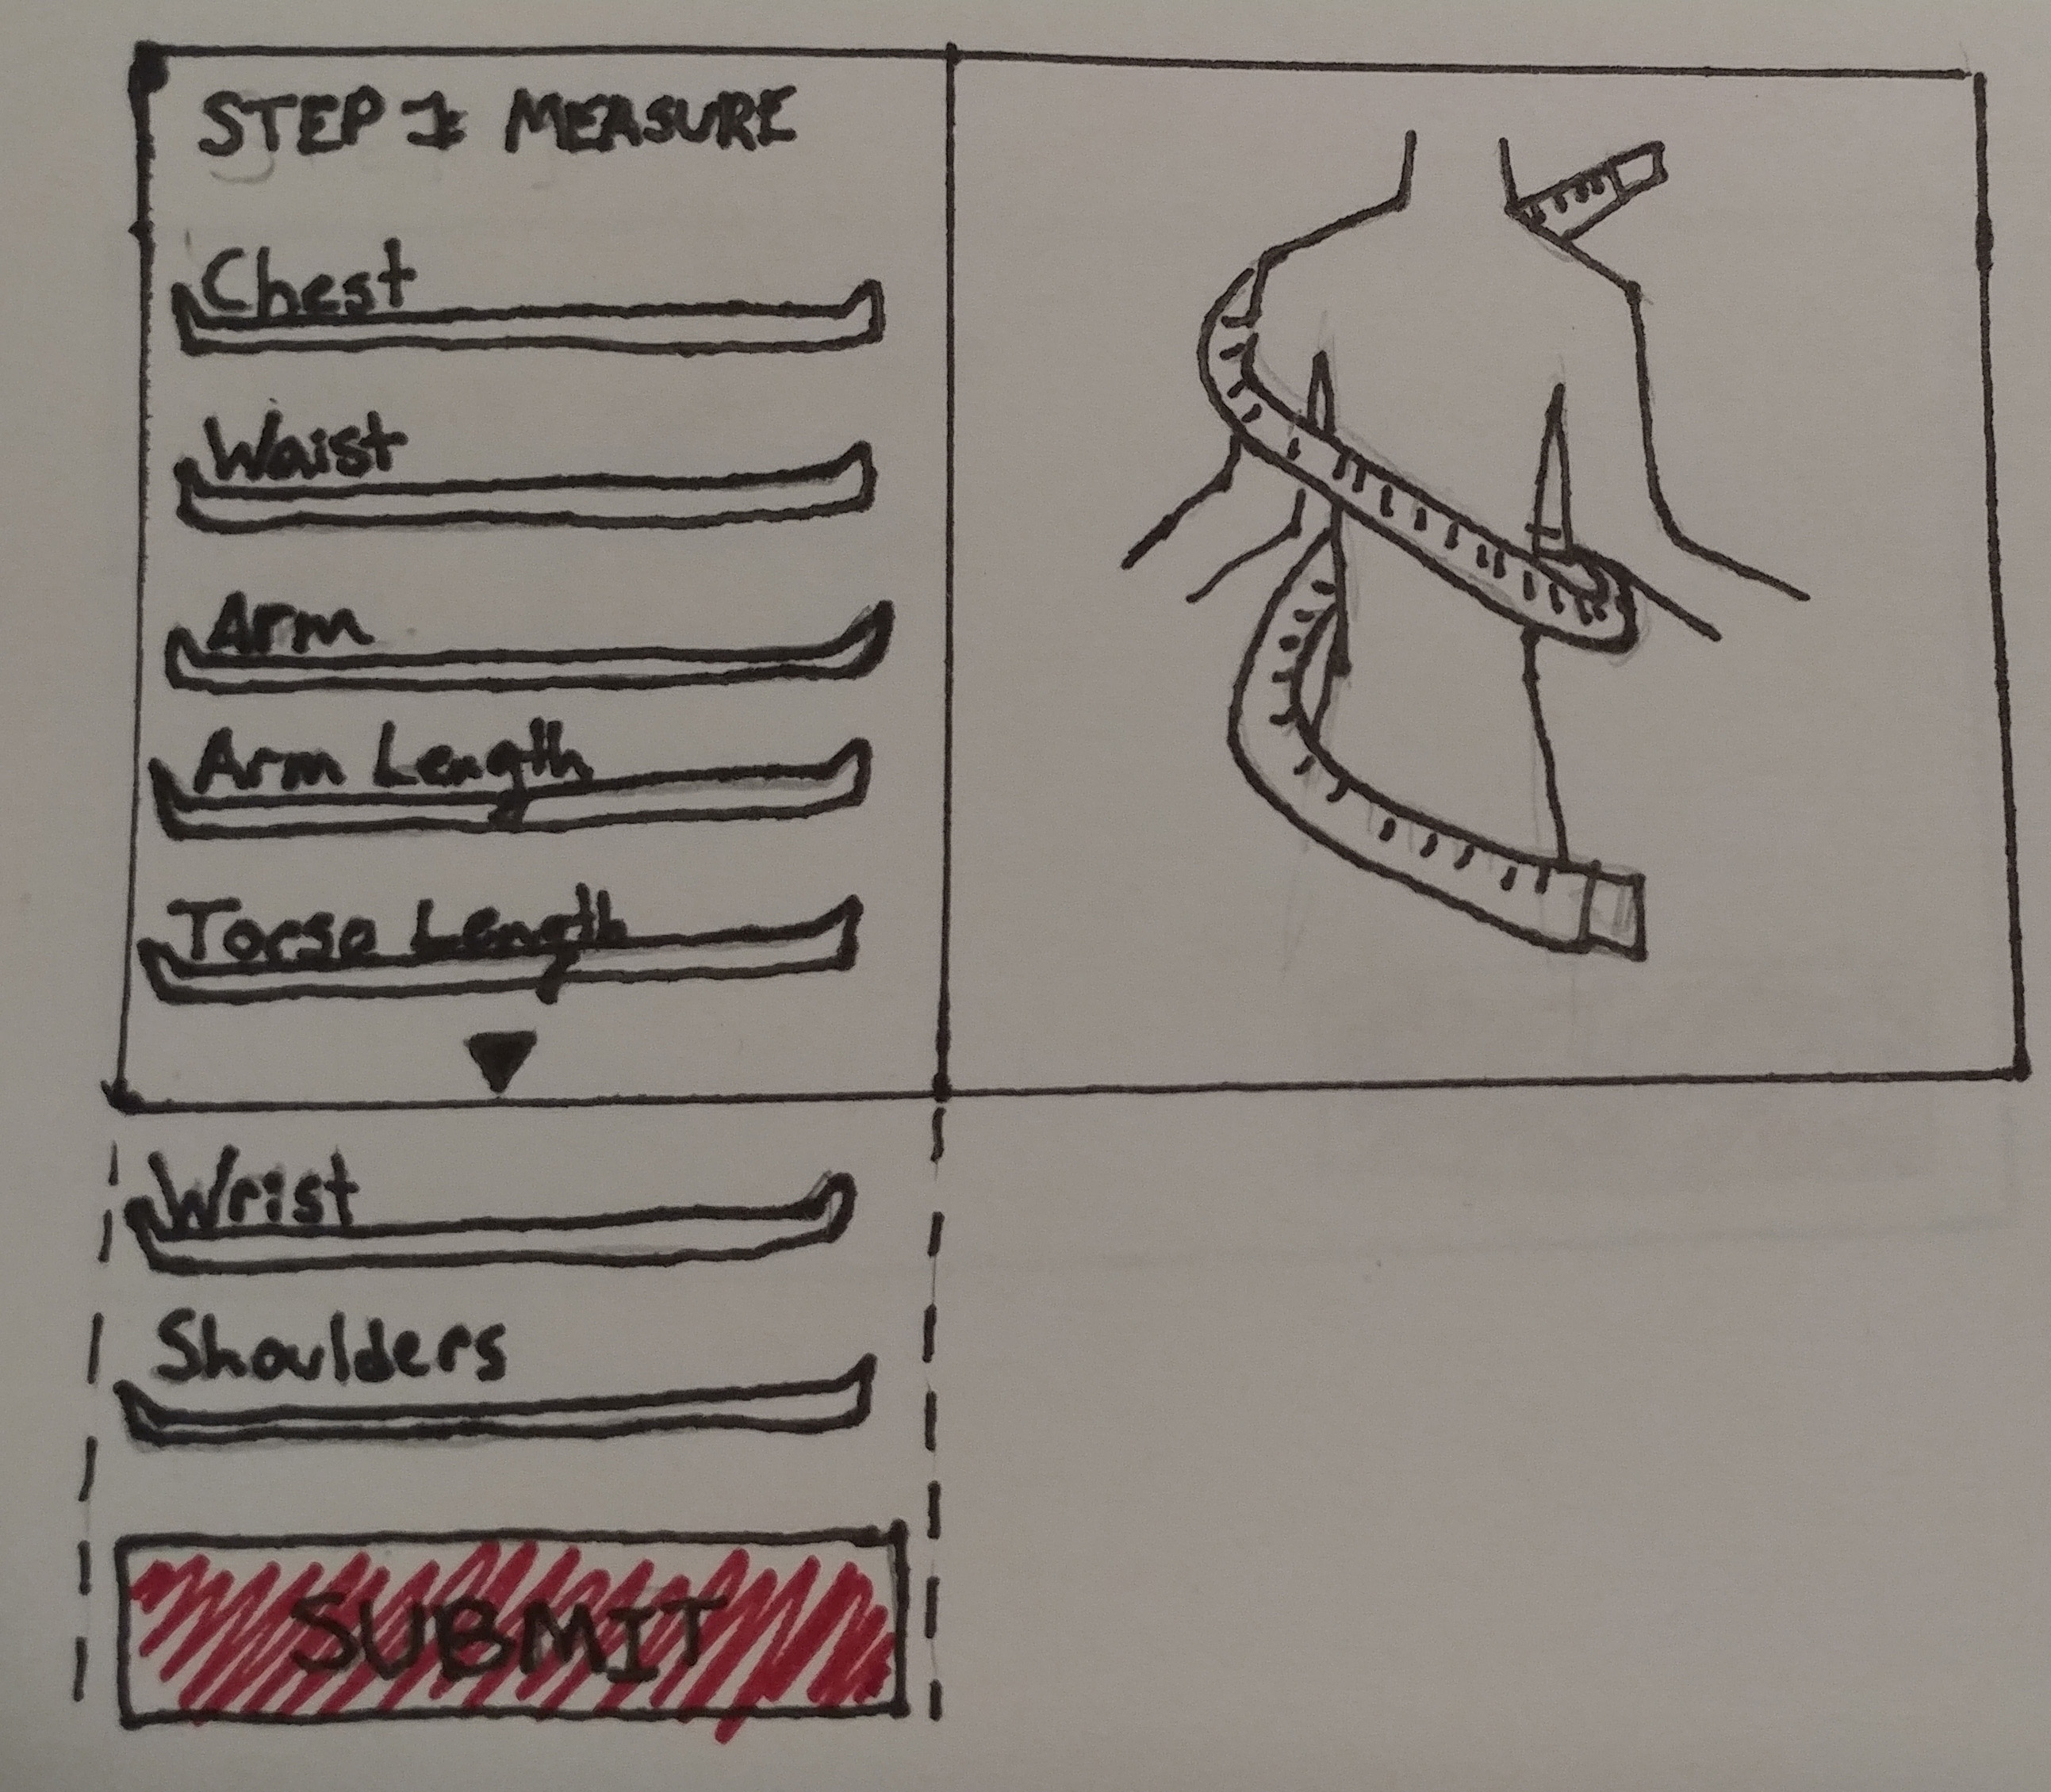 STEP 1: MEASURE
Chest
Waist
Arm
Arm Length
Torso Length
Wrist
Shoulders
SUBMIT